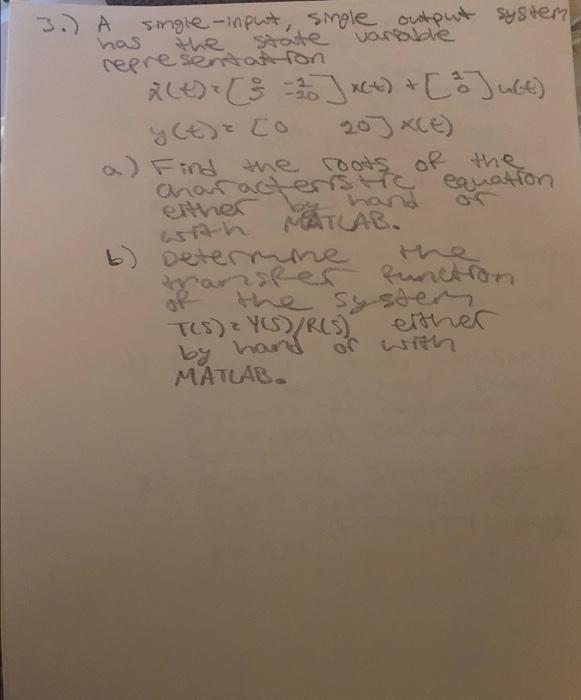 3.) A single-input, single output system
has the state variable
representation
ẋ(t) = [0 -1; 5 -10] x(t) + [1; 0] u(t)
y(t) = [0 20] x(t)
a) Find the roots of the
characteristic equation
either by hand or
with MATLAB.
b) Determine the
transfer function
of the system
T(s) = Y(s)/R(s) either
by hand or with
MATLAB.